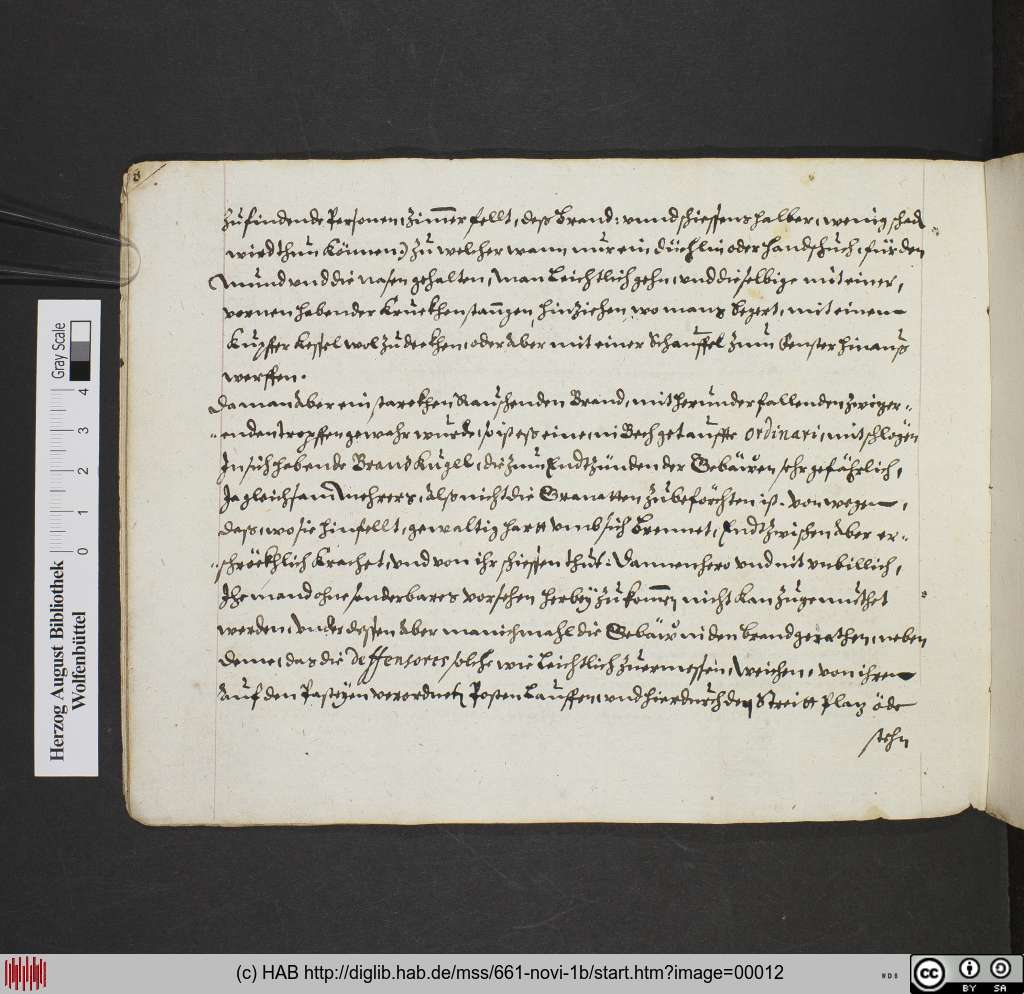 8
zufindende Personen, Zim̄er fellt, deß Brand: vnnd schiessens halber, wenig schad
wird thun können) Zu welcher wann nur ein düechlin oder handschuch, für den
Mund vnd die nasen gehalten, man Leichtlich gehn, vnd dieselbige mit einer,
vornen habender Kruckhenstanngen, hinziehen, wo mans begert, mit einem
Kupfer kessel wol zudeckhen, oder aber mit einer Schauffel zum Fenster hinauß
werffen.
Da man aber ein starckhen Rauschenden Brand, mit herunder fallenden
enden tropffen gewahr wurde, so ist eß eine, in Bech getauffte ordinari, mit schlögen
In sich habende Brand Kugel, die zum Endtzünden der Gebäwen sehr gefährlich,
Ja gleichsam Mehrers, alß nicht die Granatten zubeförchten ist. von wegen,
daß, wo sie hinfellt, gewaltig hart vmb sich brennet, Endtzwischen aber er-
schröckhlich Krachet, vnd von ihr schiessen thut: Dannenhero vnd nit vnbillich,
Jhemand ohne sonderbares vorsehen herbey zukom̄en nicht kan zugemuthet
werden, vnder dessen aber manichmahl die Gebäw in den brand gerathen, neben
deme, das die Deffensores solche wie Leichtlich zuermessen, Weichen, von ihren
auf den Pasteyen verordneten Posten Lauffen, vnd hierdurch den Streitt Platz öde
stehn
Herzog August Bibliothek
Wolfenbüttel
0 1 2 3 4
Gray Scale
(c) HAB http://diglib.hab.de/mss/661-novi-1b/start.htm?image=00012
WDB
cc BY SA